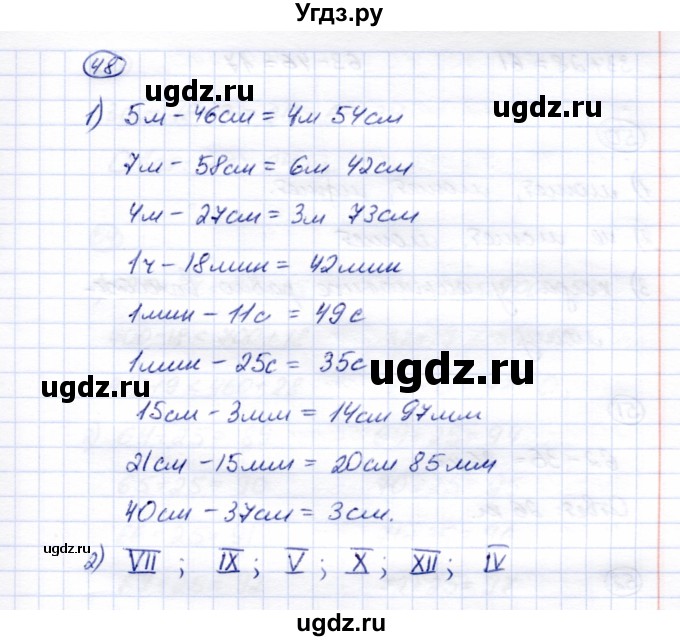 Угдз.ру
48
ugdz.ru ugdz.ru
1) 5м - 46см = 4м 54см
7м - 58см = 6м 42см
4м - 27см = 3м 73см
ugdz.ru
1ч - 18мин = 42мин
1мин - 11с = 49с
1мин - 25с = 35с
ugdz.ru ugdz.ru
15см - 3мм = 14см 97мм
21см - 15мм = 20см 85мм
ugdz.ru
40см - 37см = 3см.
ugdz.ru ugdz.ru
2) VII ; IX ; V ; X ; XII ; IV
ugdz.ru